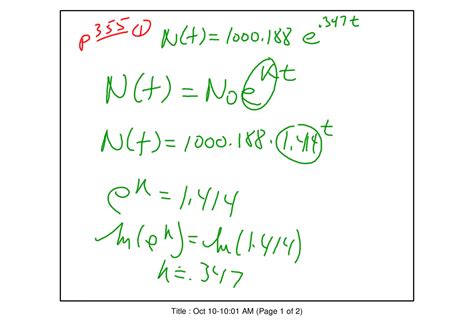 p355 ① N(t) = 1000.188 e^.347t
N(t) = N₀e^kt
N(t) = 1000.188 · 1.414^t
e^k = 1.414
ln(e^k) = ln(1.414)
k = .347
Title : Oct 10-10:01 AM (Page 1 of 2)